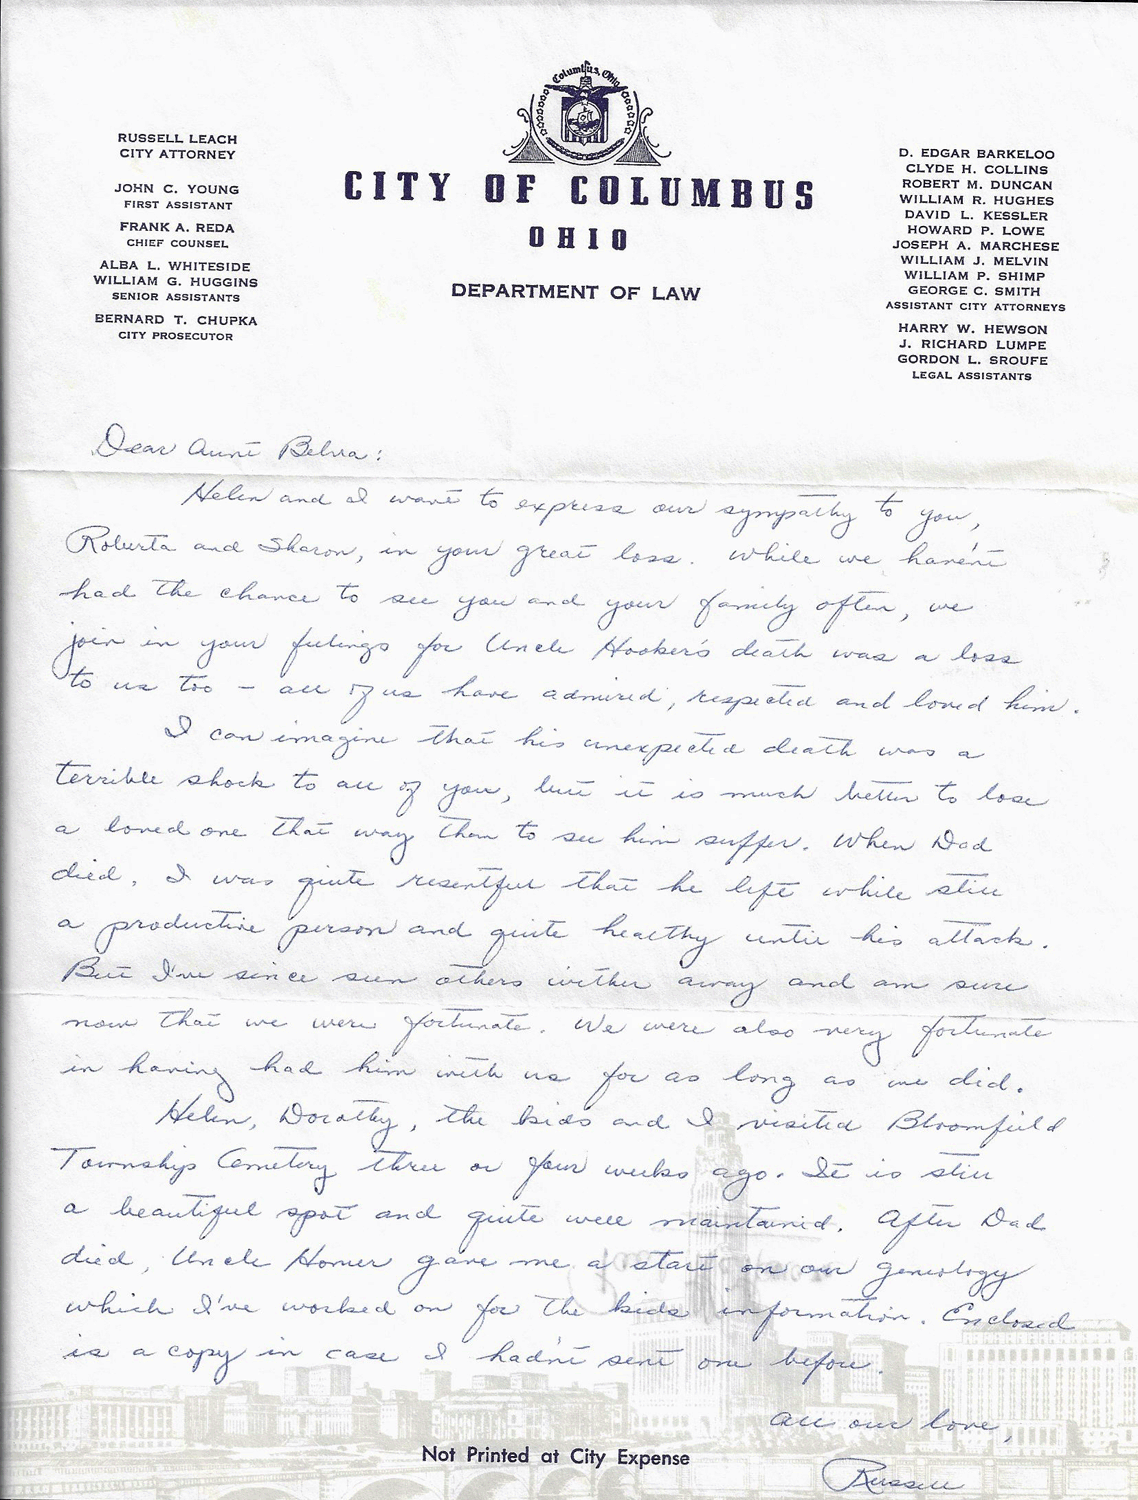 Columbus, Ohio
RUSSELL LEACH
CITY ATTORNEY
JOHN C. YOUNG
FIRST ASSISTANT
FRANK A. REDA
CHIEF COUNSEL
ALBA L. WHITESIDE
WILLIAM G. HUGGINS
SENIOR ASSISTANTS
BERNARD T. CHUPKA
CITY PROSECUTOR
CITY OF COLUMBUS
OHIO
DEPARTMENT OF LAW
D. EDGAR BARKELOO
CLYDE H. COLLINS
ROBERT M. DUNCAN
WILLIAM R. HUGHES
DAVID L. KESSLER
HOWARD P. LOWE
JOSEPH A. MARCHESE
WILLIAM J. MELVIN
WILLIAM P. SHIMP
GEORGE C. SMITH
ASSISTANT CITY ATTORNEYS
HARRY W. HEWSON
J. RICHARD LUMPE
GORDON L. SROUFE
LEGAL ASSISTANTS
Dear Aunt :
Helen and I want to express our sympathy to you,
Roberta and Sharon, in your great loss. While we haven't
had the chance to see you and your family often, we
join in your feelings for Uncle Hooker's death was a loss
to us too - all of us have admired, respected and loved him.
I can imagine that his unexpected death was a
terrible shock to all of you, but it is much better to lose
a loved one that way than to see him suffer. When Dad
died, I was quite resentful that he left while still
a productive person and quite healthy until his attack.
But I've since seen others wither away and am sure
now that we were fortunate. We were also very fortunate
in having had him with us for as long as we did.
Helen, Dorothy, the kids and I visited Bloomfield
Township Cemetery three or four weeks ago. It is still
a beautiful spot and quite well maintained. After Dad
died, Uncle Homer gave me a start on our geneology
which I've worked on for the kids information. Enclosed
is a copy in case I hadn't sent one before.
All our love,
Russell
Not Printed at City Expense